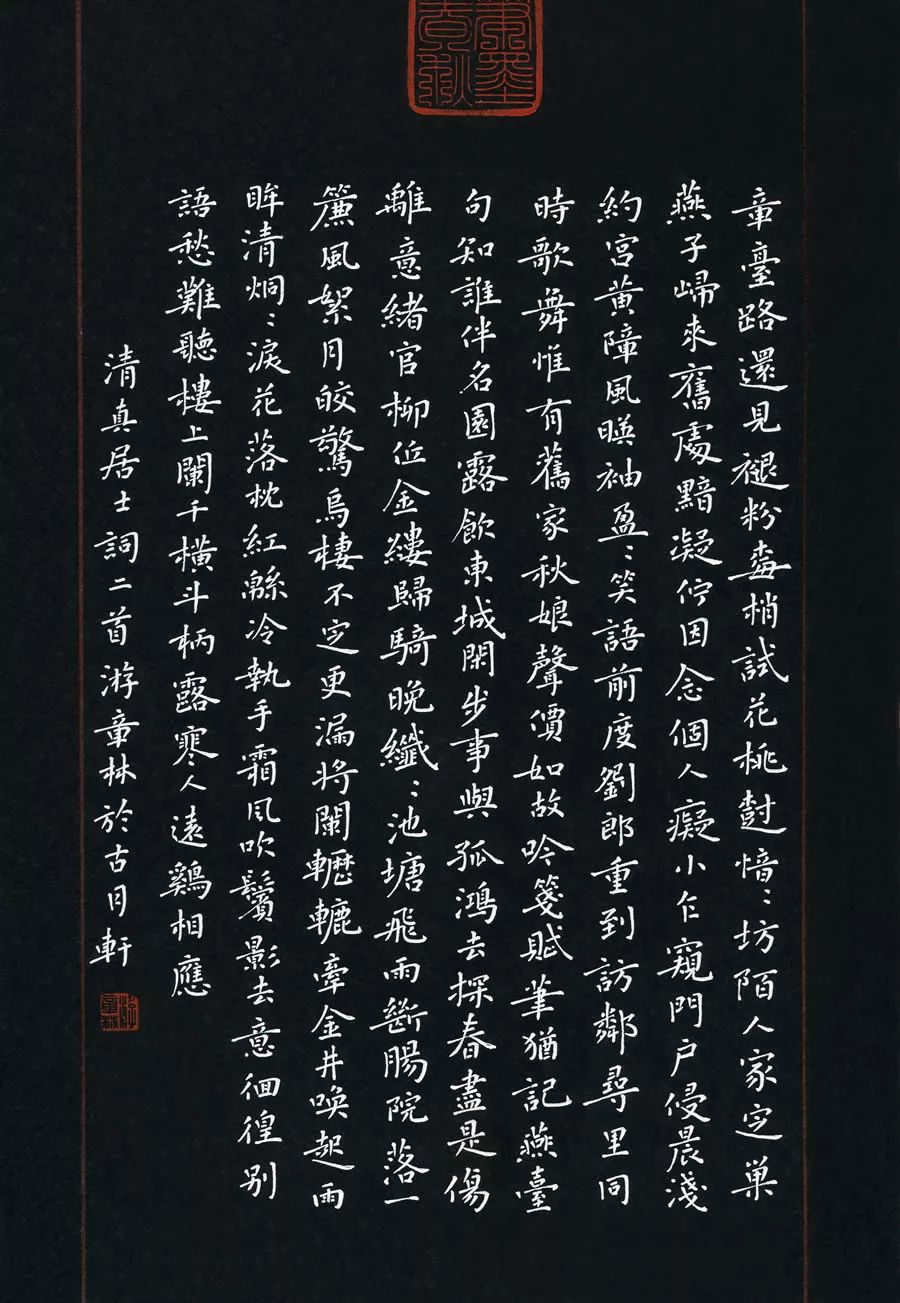 章臺路還見褪粉梅梢試花桃樹愔〻坊陌人家定巢
燕子歸來舊處黯凝佇因念個人癡小乍窺門戶侵晨淺
約宮黃障風暎袖盈〻笑語前度劉郎重到訪鄰尋里同
時歌舞惟有舊家秋娘聲價如故吟箋賦筆猶記燕臺
句知誰伴名園露飲東城閑步事與孤鴻去探春盡是傷
離意緒官柳低金縷歸騎晚纖〻池塘飛雨斷腸院落一
簾風絮月皎驚烏棲不定更漏將闌轣轆牽金井喚起兩
眸清炯〻淚花落枕紅緜冷執手霜風吹鬢影去意徊徨別
語愁難聽樓上闌干橫斗柄露寒人遠鷄相應
清真居士詞二首游章林於古月軒